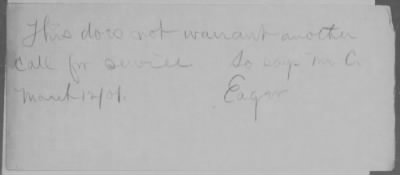 This does not warrant another
call for service. So says Mr C.
March 12/01. Eagar